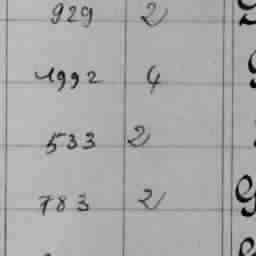 929 2
1992 4
533 2
783 2